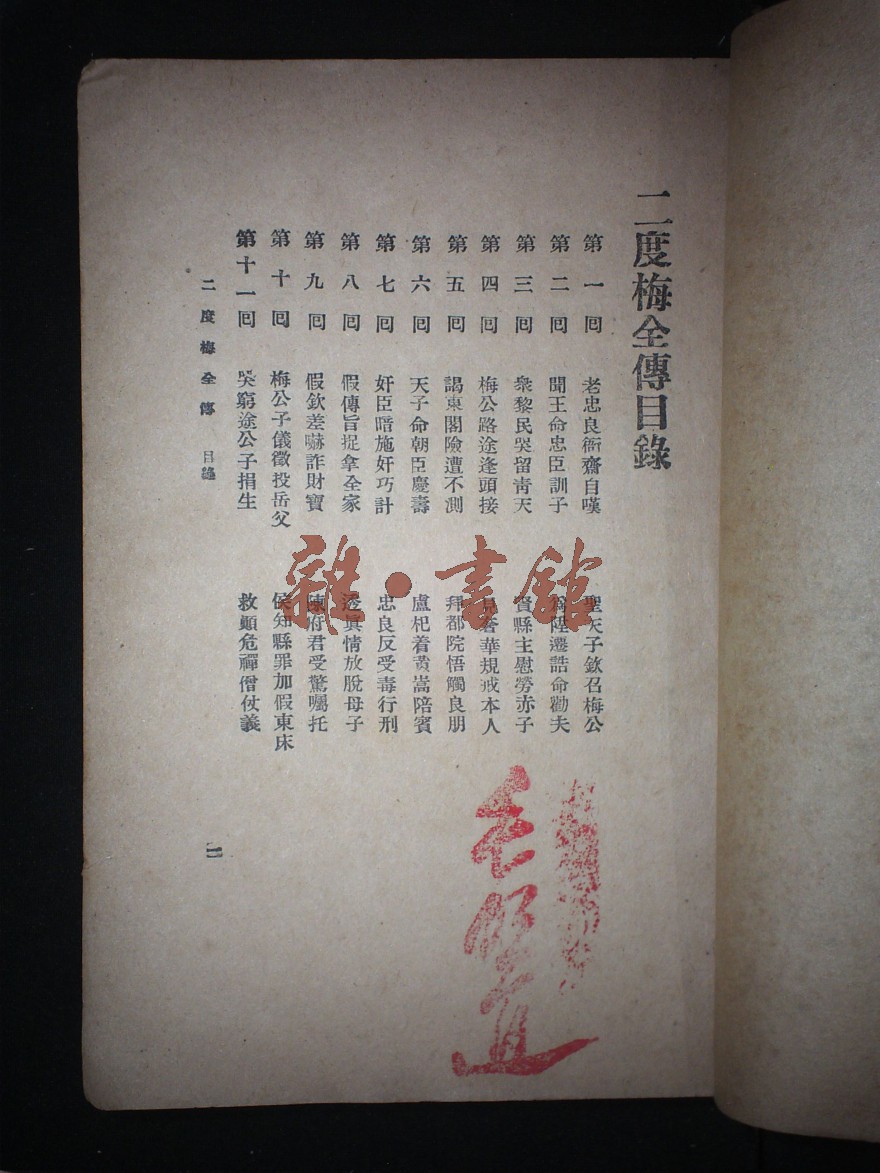 二度梅全傳目錄
第一回 老忠良衙齋自嘆 聖天子欽召梅公
第二回 聞王命忠臣訓子 爲陞遷誥命勸夫
第三回 衆黎民哭留靑天 賢縣主慰勞赤子
第四回 梅公路途逢頭接 奢華規戒本人
第五回 謁東閣險遭不測 拜都院悟觸良朋
第六回 天子命朝臣慶壽 盧杞着黃嵩陪賓
第七回 奸臣暗施奸巧計 忠良反受毒行刑
第八回 假傳旨捉拿全家 透眞情放脫母子
第九回 假欽差嚇詐財寶 陳府君受驚囑托
第十回 梅公子儀徵投岳父 侯知縣罪加假東床
第十一回 哭窮途公子捐生 救顚危禪僧仗義
二度梅全傳 目錄
雜·書館